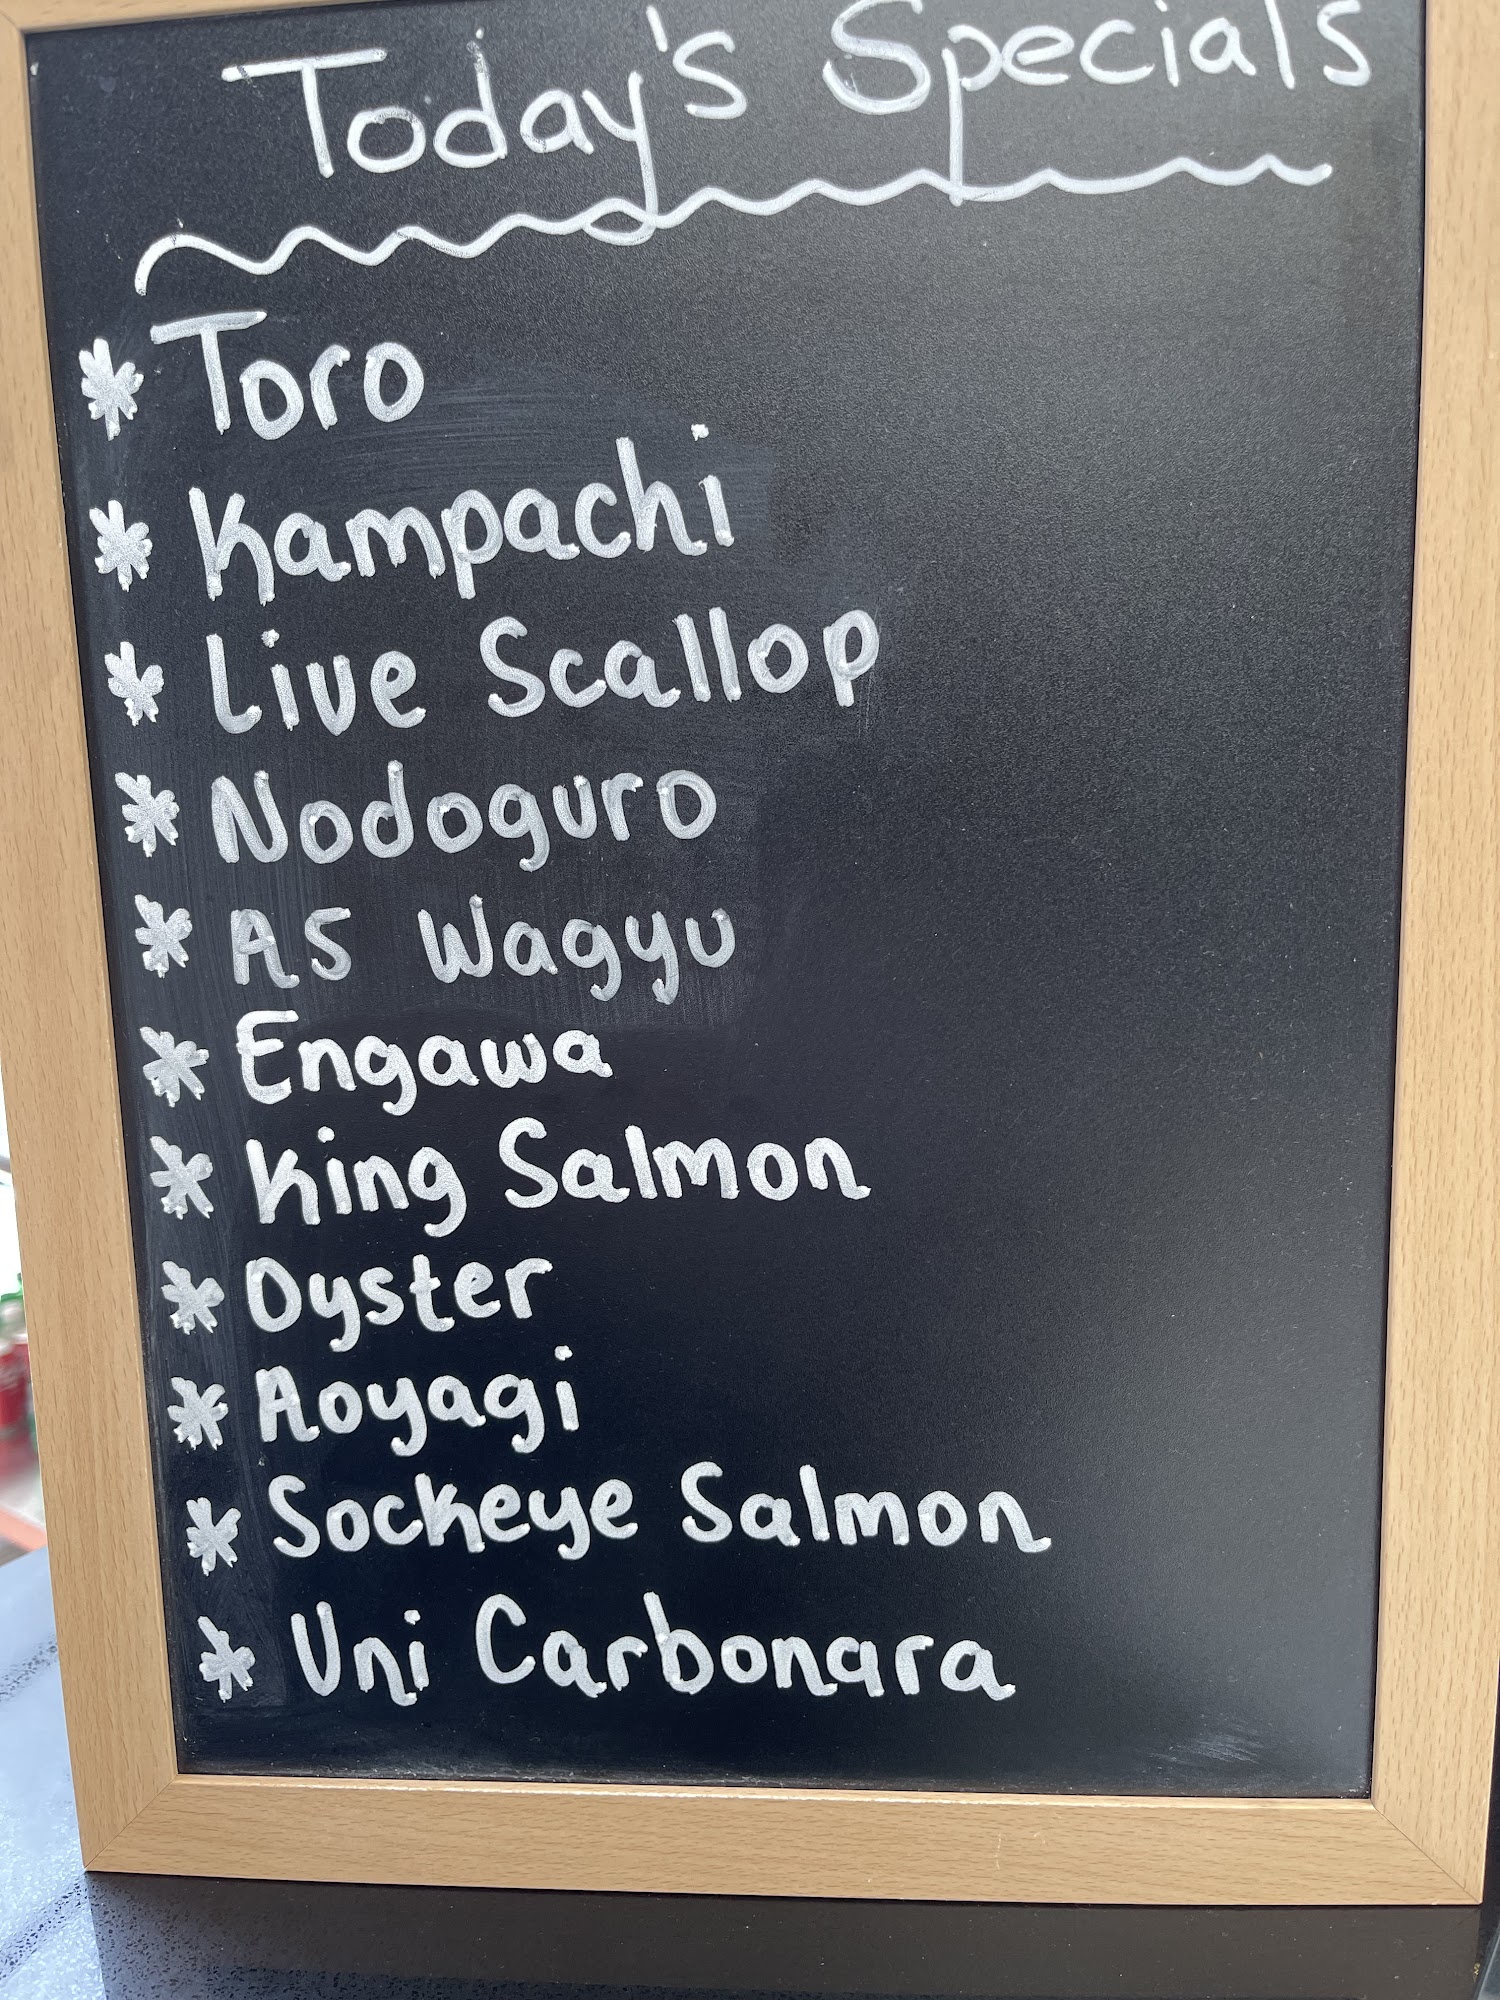 Today's Specials
* Toro
* Kampachi
* Live Scallop
* Nodoguro
* A5 Wagyu
* Engawa
* King Salmon
* Oyster
* Aoyagi
* Sockeye Salmon
* Uni Carbonara